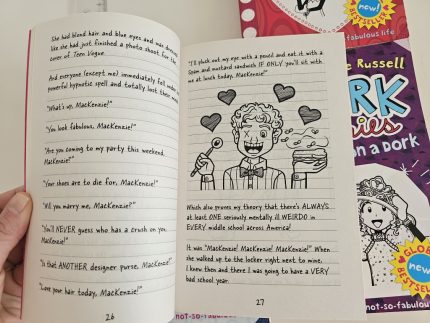 She had blond hair and blue eyes and was dressed
like she had just finished a photo shoot for the
cover of Teen Vogue.
And everyone (except me) immediately fell under
powerful hypnotic spell and totally lost their
"What's up, MacKenzie!"
"You look fabulous, MacKenzie!"
"Are you coming to my party this weekend,
MacKenzie?"
"Your shoes are to die for, MacKenzie!"
"Will you marry me, MacKenzie?"
"You'll NEVER guess who has a crush on you,
MacKenzie!"
"Is that ANOTHER designer purse, MacKenzie?"
"Love your hair today, MacKenzie!"
26
"I'll pluck out my eye with a pencil and eat it with a
Spam and mustard sandwich IF ONLY you'll sit with
me at lunch today, MacKenzie!"
Which also proves my theory that there's ALWAYS
at least ONE seriously mentally ill WEIRDO in
EVERY middle school across America!
It was "MacKenzie! MacKenzie! MacKenzie!" When
she walked up to the locker right next to mine,
I knew then and there I was going to have a VERY
bad school year.
27
new!
BESTSELLER
-fabulous life
e Russell
RK
ies
on a Dork
GLOBAL
BESTSELLER
new!
not-so-fabulous
not-so-fabulous